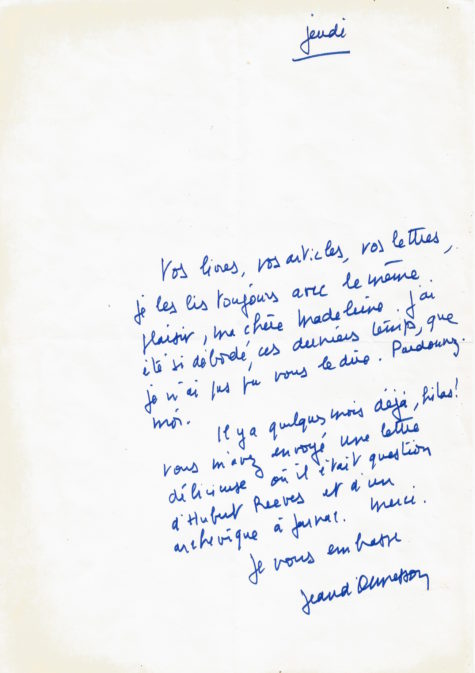 jeudi
Vos livres, vos articles, vos lettres,
je les lis toujours avec le même
plaisir, ma chère Madeleine. J'ai
été si débordé, ces derniers temps, que
je n'ai pas pu vous le dire. Pardonnez-
moi.
Il y a quelques mois déjà, hélas!
vous m'avez envoyé une lettre
délicieuse où il était question
d'Hubert Reeves et d'un
archevêque à Jarnac. Merci.
Je vous embrasse
Jean d'Ormesson